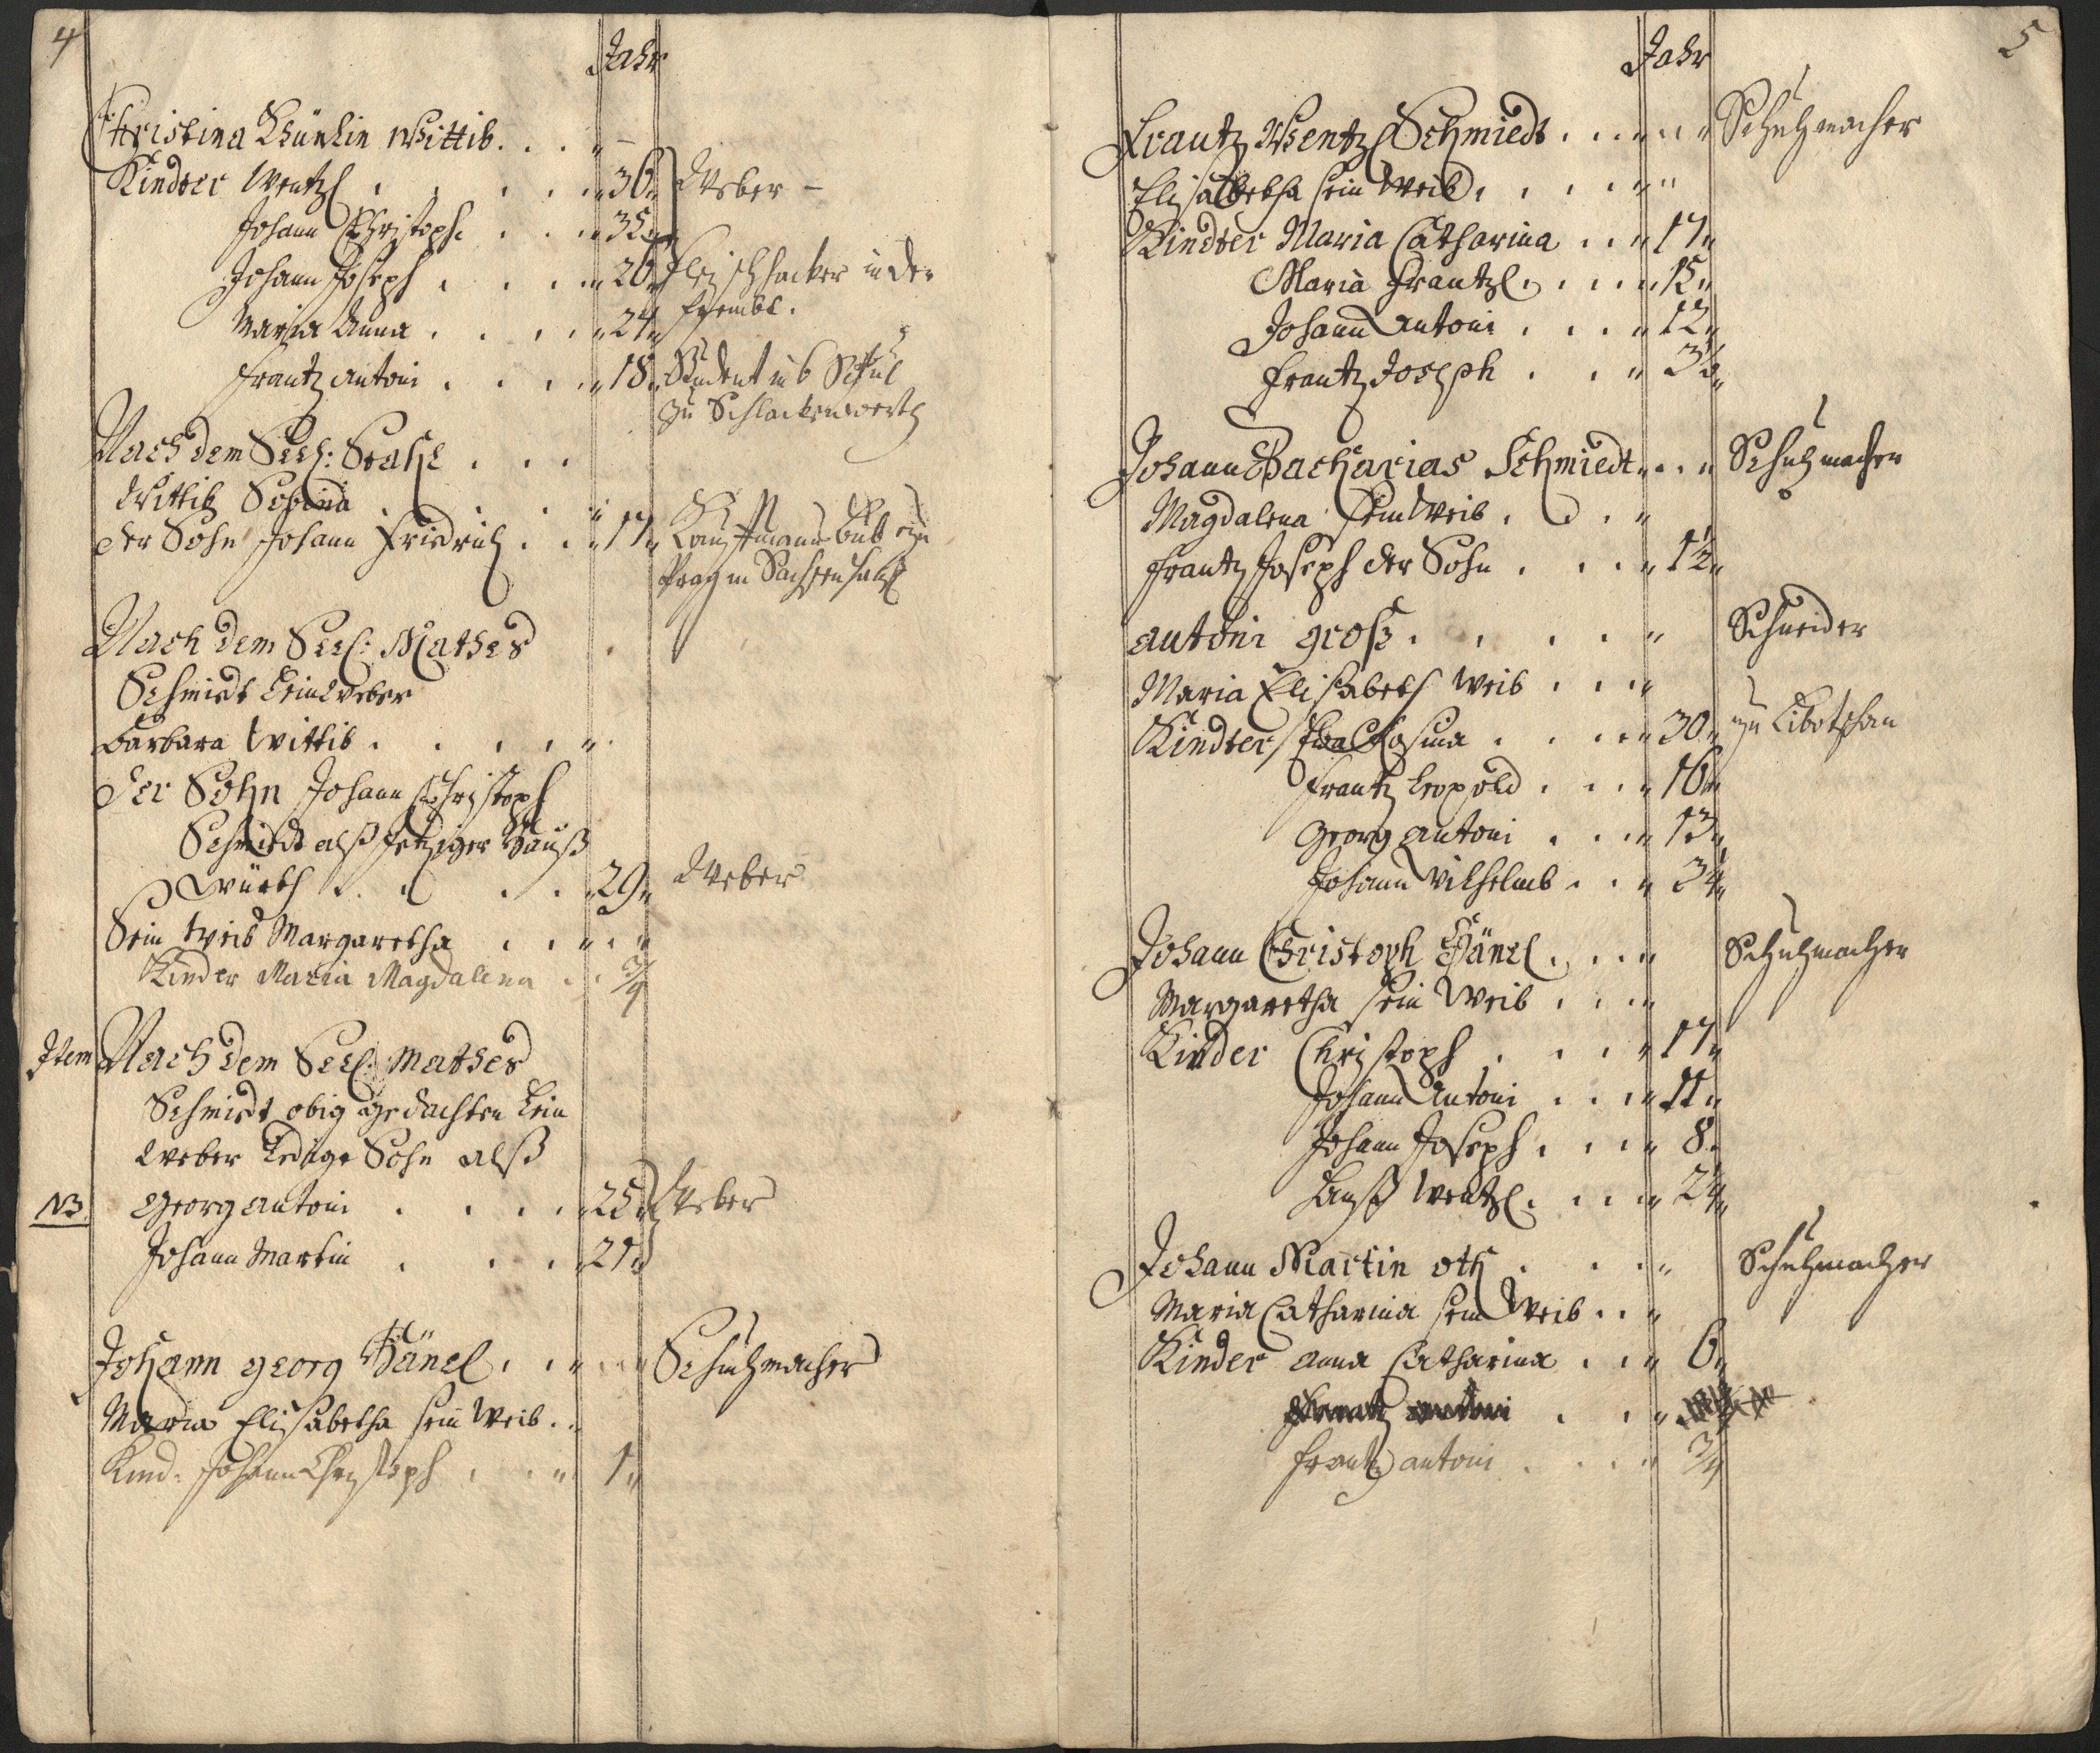 4
Jahr
Christina Wittib
Kindter Wentzl 36 Weber
Johann Christoph 35
Johann Joseph 26 Fleischhacker in der
Frembt.
Maria Anna 24
Frantz Antoni 18 Student
zu Schlackenwerth
Nach dem Seel:
Wittib
der Sohn Johann Friedrich 17 Kauffmanns
Prag
Nach dem Seel: Mathes
Schmidt Leinweber
Barbara Wittib
Der Sohn Johann Christoph
Schmidt alß jetziger Hauß
Würth 29 Weber
Sein Weib Margaretha
Kinder Maria Magdalena 3/4
Item Nach dem Seel: Mathes
Schmidt obig gedachten Lein
weber ledige Sohn alß
NB. Georg Antoni 25 Weber
Johann Martin 21
Johann Georg Hänel Schuhmacher
Maria Elisabetha sein Weib
Kind: Johann Christoph 1
5
Jahr
Frantz Wentzl Schmiedt Schuhmacher
Elisabetha sein Weib
Kindter Maria Catharina 17
Maria Frantzl 15
Johann Antoni 12
Frantz Joseph 3½
Johann Zacharias Schmiedt Schuhmacher
Magdalena sein Weib
Frantz Joseph der Sohn 1½
Antoni Groß Schneider
Maria Elisabeth Weib
Kindter Eva Rosina 30 zu Libotschan
Frantz Leopold 16
Georg Antoni 13
Johann Wilhelmb
Johann Christoph Hänel Schuhmacher
Margaretha sein Weib
Kinder Christoph 17
Johann Antoni 11
Johann Joseph 8
Hanß Wentzl
Johann Martin Oth Schuhmacher
Maria Catharina sein Weib
Kinder Anna Catharina 6
Frantz Antoni
Frantz Antoni 3/4